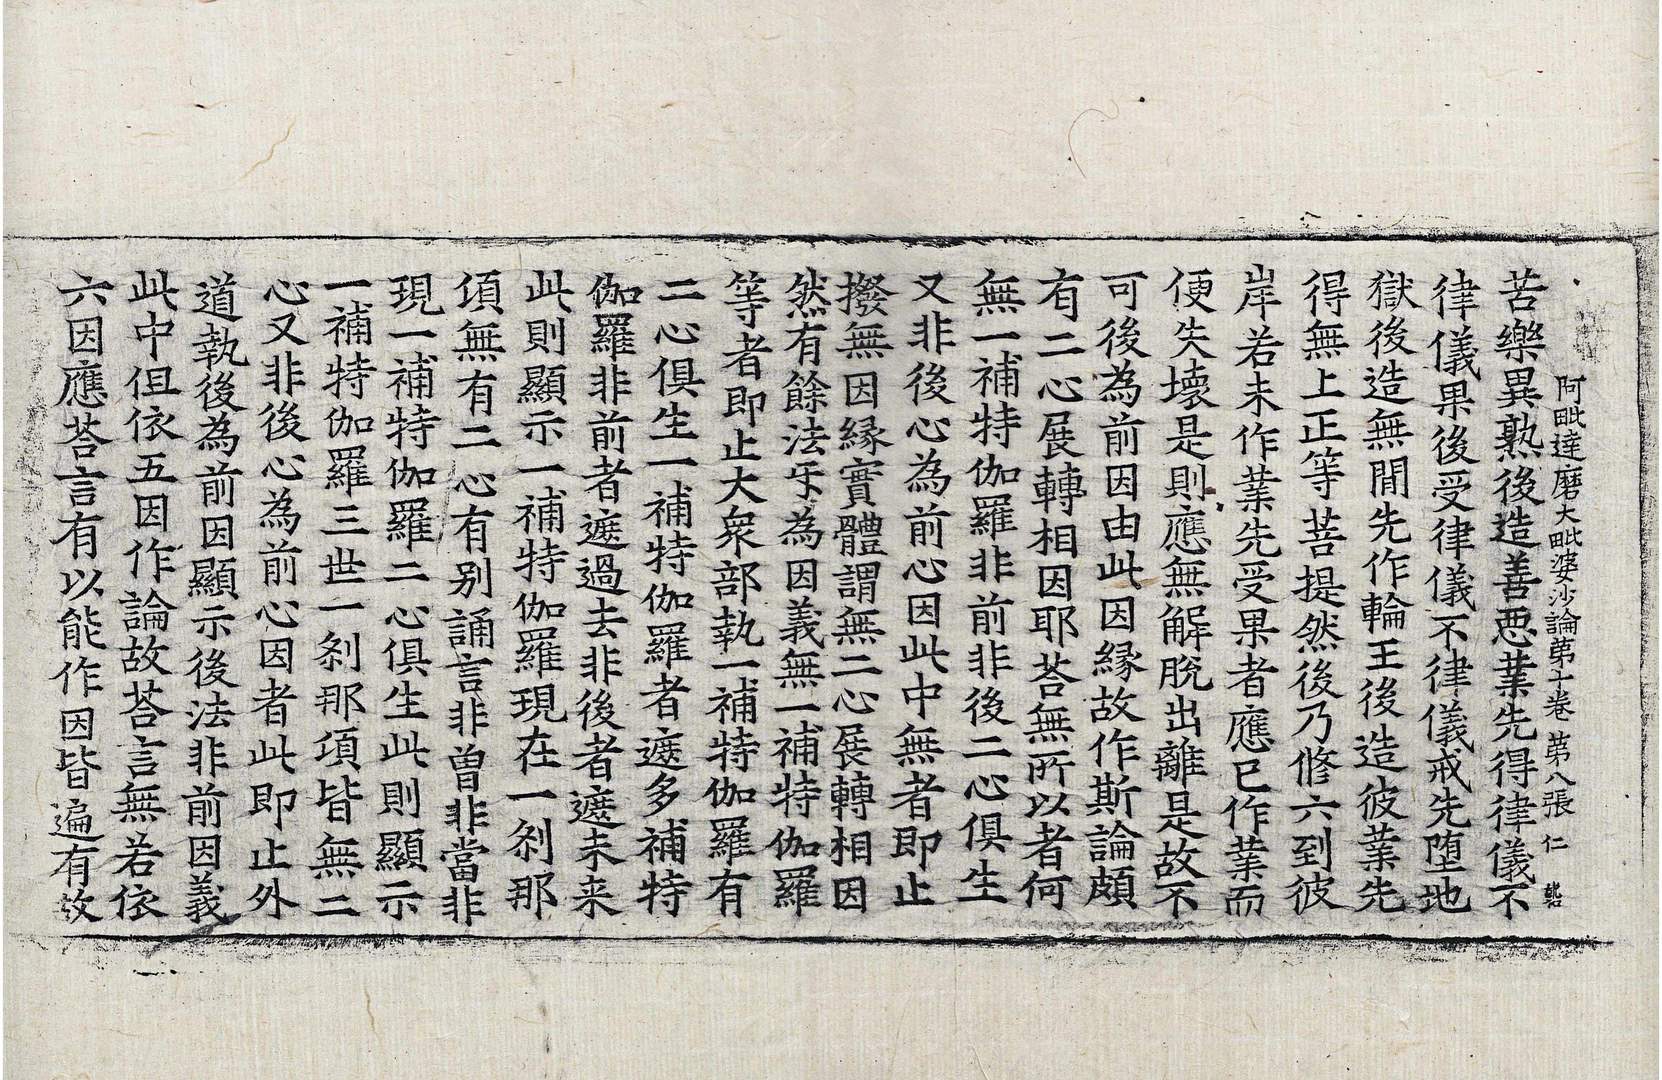 阿毗達磨大毗婆沙論第十卷 第八張 仁
苦樂異熟後造善惡業先得律儀不
律儀果後受律儀不律儀戒先墮地
獄後造無間先作輪王後造彼業先
得無上正等菩提然後乃修六到彼
岸若未作業先受果者應已作業而
便失壞是則應無解脫出離是故不
可後為前因由此因緣故作斯論頗
有二心展轉相因耶荅無所以者何
無一補特伽羅非前非後二心俱生
又非後心為前心因此中無者即止
撥無因緣實體謂無二心展轉相因
然有餘法㸦為因義無一補特伽羅
等者即止大衆部執一補特伽羅有
二心俱生一補特伽羅者遮多補特
伽羅非前者遮過去非後者遮未来
此則顯示一補特伽羅現在一剎那
頃無有二心有別誦言非曾非當非
現一補特伽羅二心俱生此則顯示
一補特伽羅三世一剎那頃皆無二
心又非後心為前心因者此即止外
道執後為前因顯示後法非前因義
此中但依五因作論故荅言無若依
六因應荅言有以能作因皆遍有故